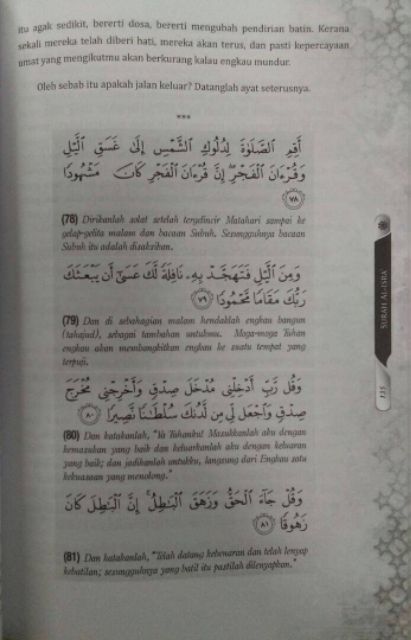 itu agak sedikit, bererti dosa, bererti mengubah pendirian batin. Kerana
sekali mereka telah diberi hati, mereka akan terus, dan pasti kepercayaan
umat yang mengikutmu akan berkurang kalau engkau mundur.
Oleh sebab itu apakah jalan keluar? Datanglah ayat seterusnya.
***
أَقِمِ ٱلصَّلَوٰةَ لِدُلُوكِ ٱلشَّمْسِ إِلَىٰ غَسَقِ ٱلَّيْلِ
وَقُرْءَانَ ٱلْفَجْرِ إِنَّ قُرْءَانَ ٱلْفَجْرِ كَانَ مَشْهُودًا
٧٨
(78) Dirikanlah solat setelah tergelincir Matahari sampai ke
gelap-gelita malam dan bacaan Subuh. Sesungguhnya bacaan
Subuh itu adalah disaksikan.
وَمِنَ ٱلَّيْلِ فَتَهَجَّدْ بِهِۦ نَافِلَةً لَّكَ عَسَىٰٓ أَن يَبْعَثَكَ
رَبُّكَ مَقَامًا مَّحْمُودًا ٧٩
(79) Dan di sebahagian malam hendaklah engkau bangun
(tahajud), sebagai tambahan untukmu. Moga-moga Tuhan
engkau akan membangkitkan engkau ke suatu tempat yang
terpuji.
وَقُل رَّبِّ أَدْخِلْنِى مُدْخَلَ صِدْقٍ وَأَخْرِجْنِى مُخْرَجَ
صِدْقٍ وَٱجْعَل لِّى مِن لَّدُنكَ سُلْطَٰنًا نَّصِيرًا ٨٠
(80) Dan katakanlah, "Ya Tuhanku! Masukkanlah aku dengan
kemasukan yang baik dan keluarkanlah aku dengan keluaran
yang baik; dan jadikanlah untukku, langsung dari Engkau satu
kekuasaan yang menolong."
وَقُلْ جَآءَ ٱلْحَقُّ وَزَهَقَ ٱلْبَٰطِلُ ۚ إِنَّ ٱلْبَٰطِلَ كَانَ
زَهُوقًا ٨١
(81) Dan katakanlah, "Telah datang kebenaran dan telah lenyap
kebatilan; sesungguhnya yang batil itu pastilah dilenyapkan."
SURAH AL-ISRA'